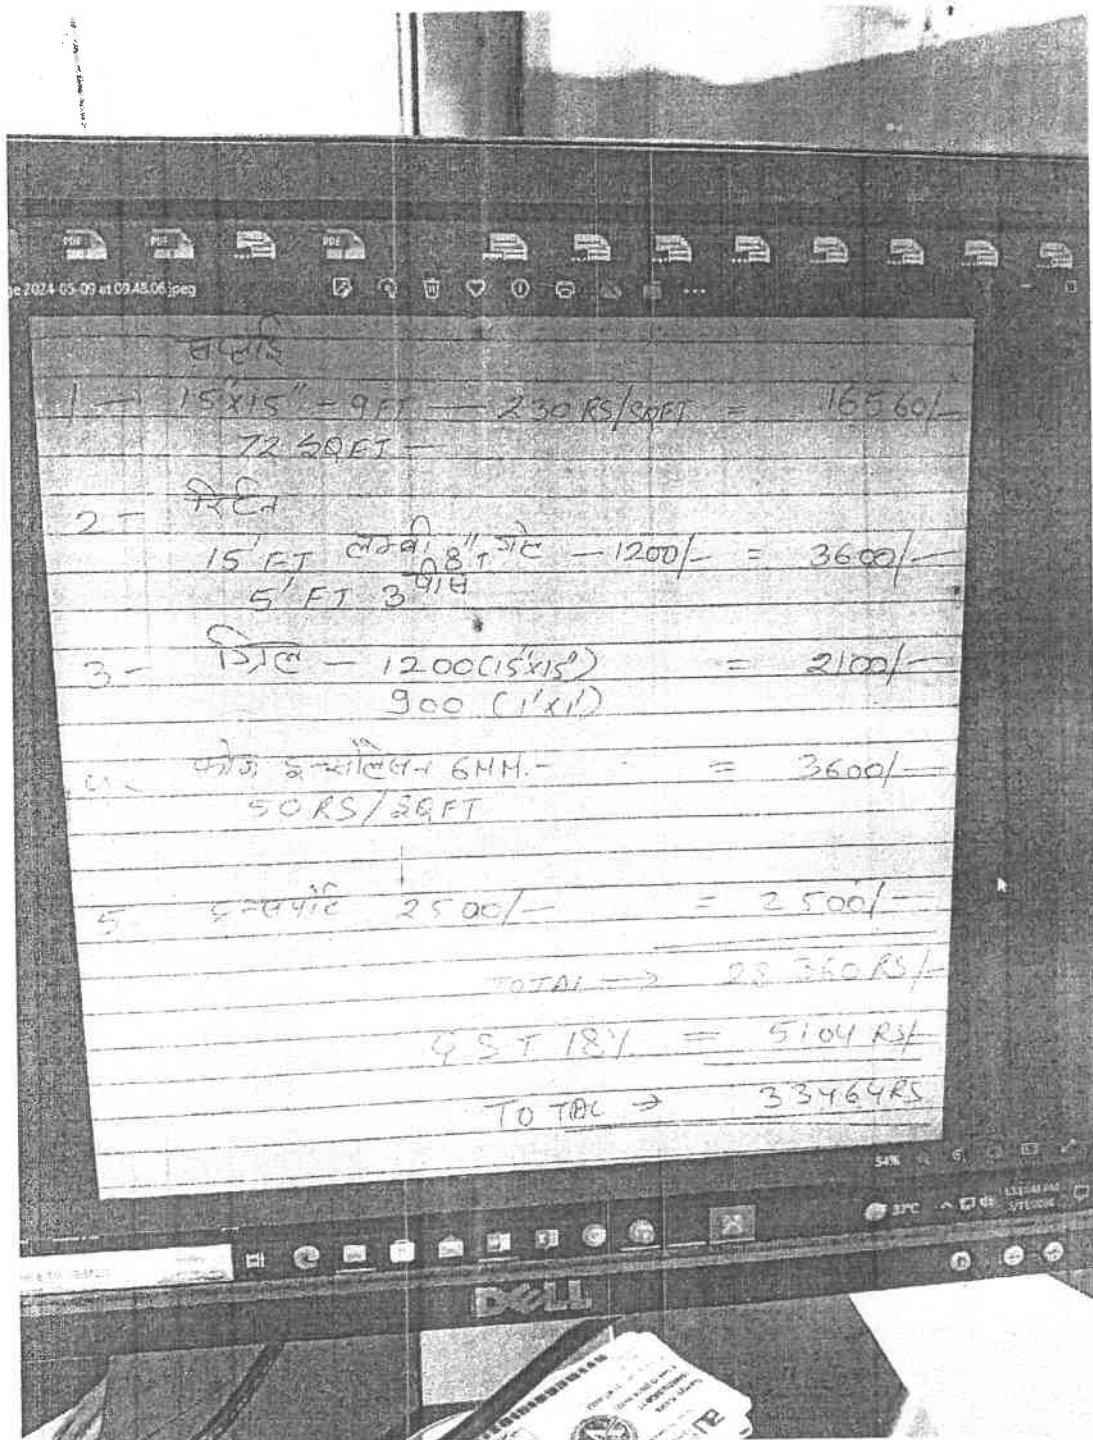 ge 2024-05-09 at 09.48.06.jpeg
सप्लाई
1 — 15"x15" = 9FT — 230 RS/SQFT = 16560/-
72 SQFT —
2 - रिटर्न
15' FT लम्बी 8" गेट — 1200/- = 3600/-
5' FT 3 पीस
3 - ग्रिल — 1200 (15"x15") = 2100/-
900 (1'x1')
6MM. - = 3600/-
50 RS/SQFT
5 2500/- = 2500/-
TOTAL → 28360 RS/-
GST 18% = 5104 RS/-
TOTAL → 33464 RS
54%
37°C
DELL